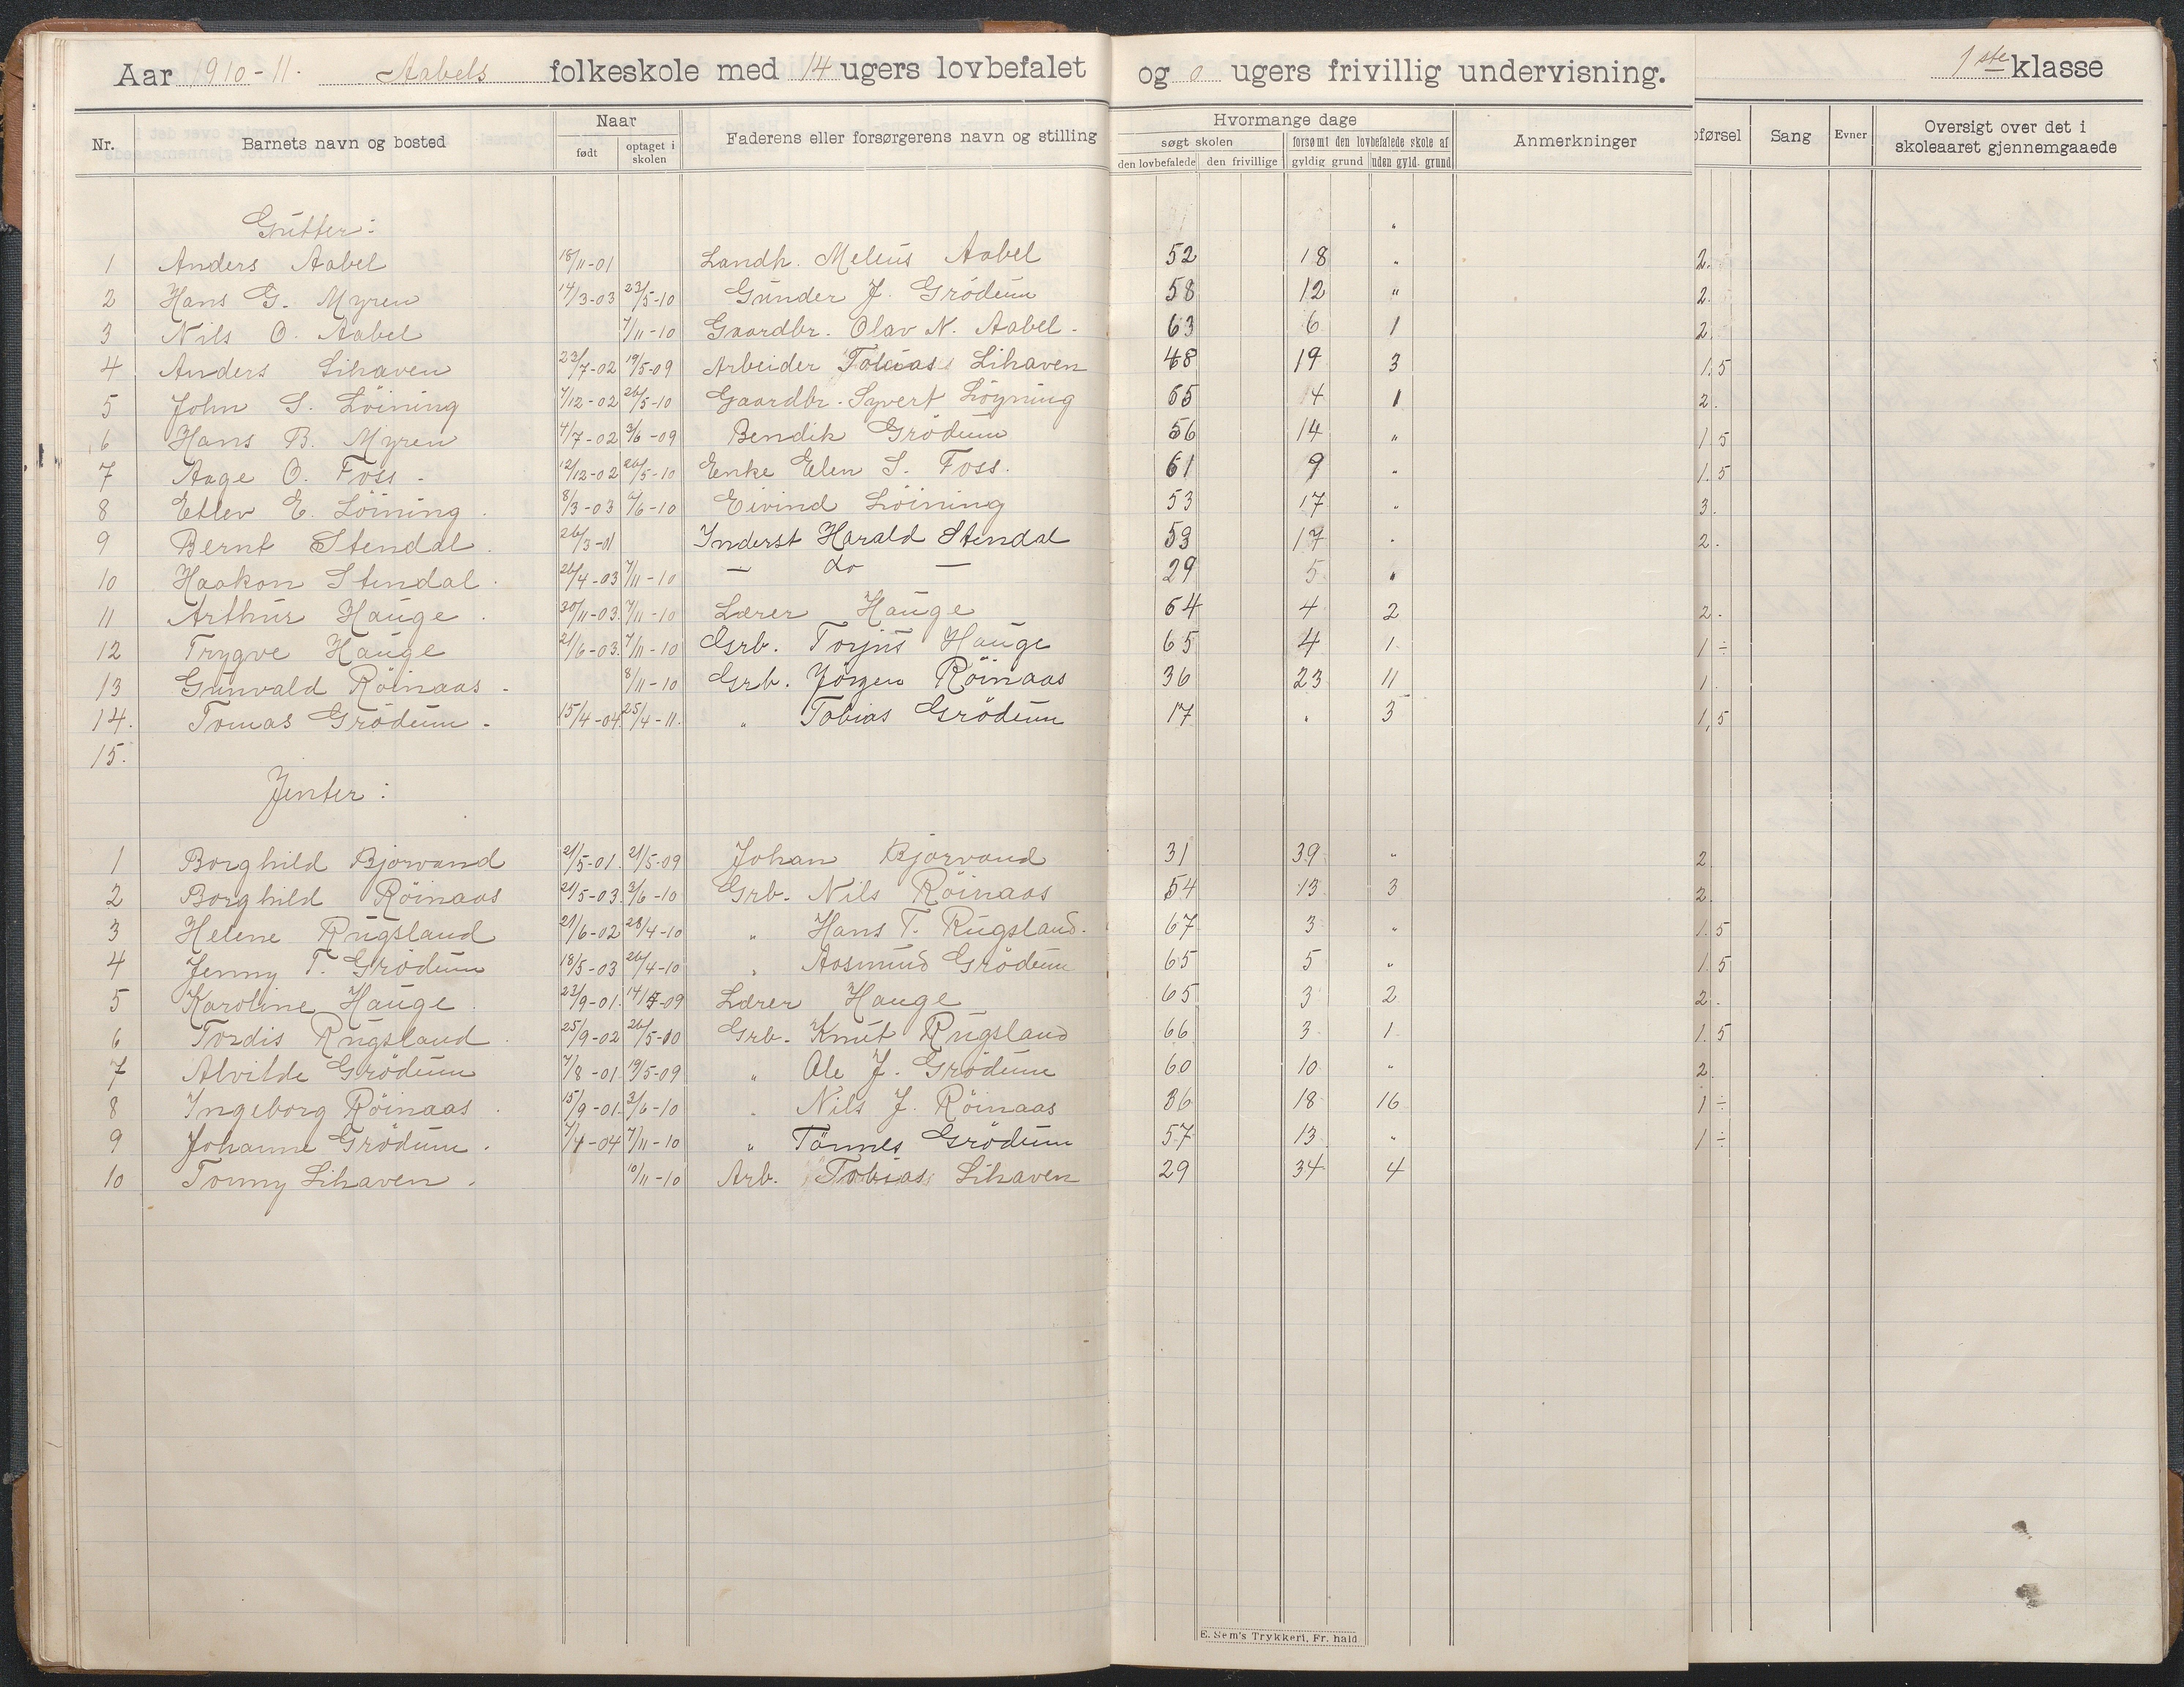 Aar 1910-11. Aabels folkeskole med 14 ugers lovbefalet og 0 ugers frivillig undervisning. 1ste klasse
Nr. Barnets navn og bosted Naar født optaget i skolen Faderens eller forsørgerens navn og stilling Hvormange dage søgt skolen den lovbefalede den frivillige forsømt den lovbefalede skole af gyldig grund uden gyld. grund Anmerkninger oførsel Sang Evner Oversigt over det i skoleaaret gjennemgaaede
Gutter:
1 Anders Aabel 18/11-01 Landh. Meleus Aabel 52 18 " 2.
2 Hans G. Myren 14/3-03 23/5-10 Gunder J. Grödum 58 12 " 2.
3 Nils O. Aabel 7/11-10 Gaardbr. Olav N. Aabel. 63 6 1 2
4 Anders Lihaven 23/7-02 19/5-09 Arbeider Tobias Lihaven 48 19 3 1,5
5 John S. Löining 7/12-02 26/5-10 Gaardbr. Syvert Löyning 65 4 1 2.
6 Hans B. Myren 4/7-02 3/6-09 Bendik Grödum 56 14 " 1 5
7 Aage O. Foss. 12/12-02 26/5-10 Enke Elen S. Foss. 61 9 " 1.5
8 Etlev E. Löining. 8/3-03 6/6-10 Eivind Löining 53 17 " 3.
9 Bernt Stendal. 26/3-01 Inderst Harald Stendal 53 17 " 2.
10 Haakon Stendal. 26/4-03 7/11-10 — do — 29 5 "
11 Arthur Hauge. 30/11-03. 7/11-10 Lærer Hauge 64 4 2 2.
12 Trygve Hauge 21/6-03. 7/11-10 Grb. Torjus Hauge 65 4 1. 1 ÷
13 Gunvald Röinaas. 8/11-10 Grb. Jörgen Röinaas 36 23 11 1.
14. Tomas Grödum. 15/4-04. 25/4-11. " Tobias Grödum 17 " 3 1,5
15.
Jenter:
1 Borghild Bjorvand 21/5-01. 21/5-09 Johan Bjorvand 31 39 " 2
2 Borghild Röinaas 21/5-03. 3/6-10 Grb. Nils Röinaas 54 13 3 2.
3 Helene Rugsland 21/6-02 28/4-10 " Hans T. Rugsland. 67 3 " 1.5
4 Jenny T. Grödum 18/5-03 26/4-10 " Aosmund Grödum 65 5 " 1.5
5 Karoline Hauge. 23/9-01. 14/5-09 Lærer Hauge 65 3 2 2.
6 Tordis Rugsland. 25/9-02 26/5-10 Grb. Knut Rugsland 66 3 1. 1.5
7 Alvilde Grödum 7/8-01. 19/5-09 " Ole J. Grödum 60 10 " 2.
8 Ingeborg Röinaas. 15/9-01. 3/6-10 " Nils J. Röinaas 36 18 16 1 ÷
9 Johanne Grödum. 7/4-04 7/11-10 " Tönnes Grödum 57 13 " 1 ÷
10 Tonny Lihaven. 10/11-10 Arb. Tobias Lihaven 29 34 4
E. Sem's Trykkeri, Fr. hald